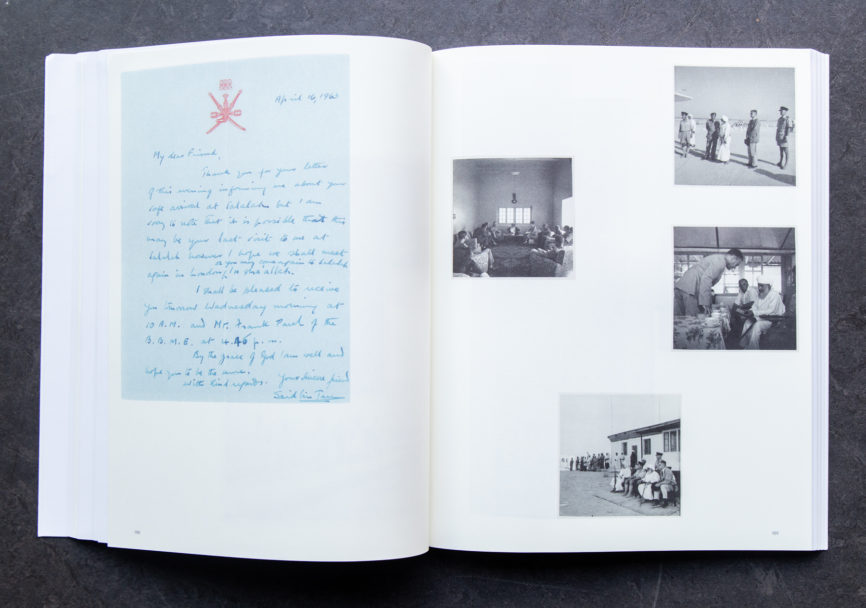 April 16, 196
My dear Friend,
Thank you for your letter
of this evening informing me about your
safe arrival at Salalah but I am
sorry to note that it is possible that this
may be your last visit to me at
Salalah however I hope we shall meet
or you may come again to Salalah
again in London, Insha allah.
I shall be pleased to receive
you tomorrow Wednesday morning at
10 A.M. and Mr. Frank of the
B.B.M.E. at p.m.
By the grace of God I am well and
hope you to be the same.
with kind regards. Your sincere friend
Said bin Taimur